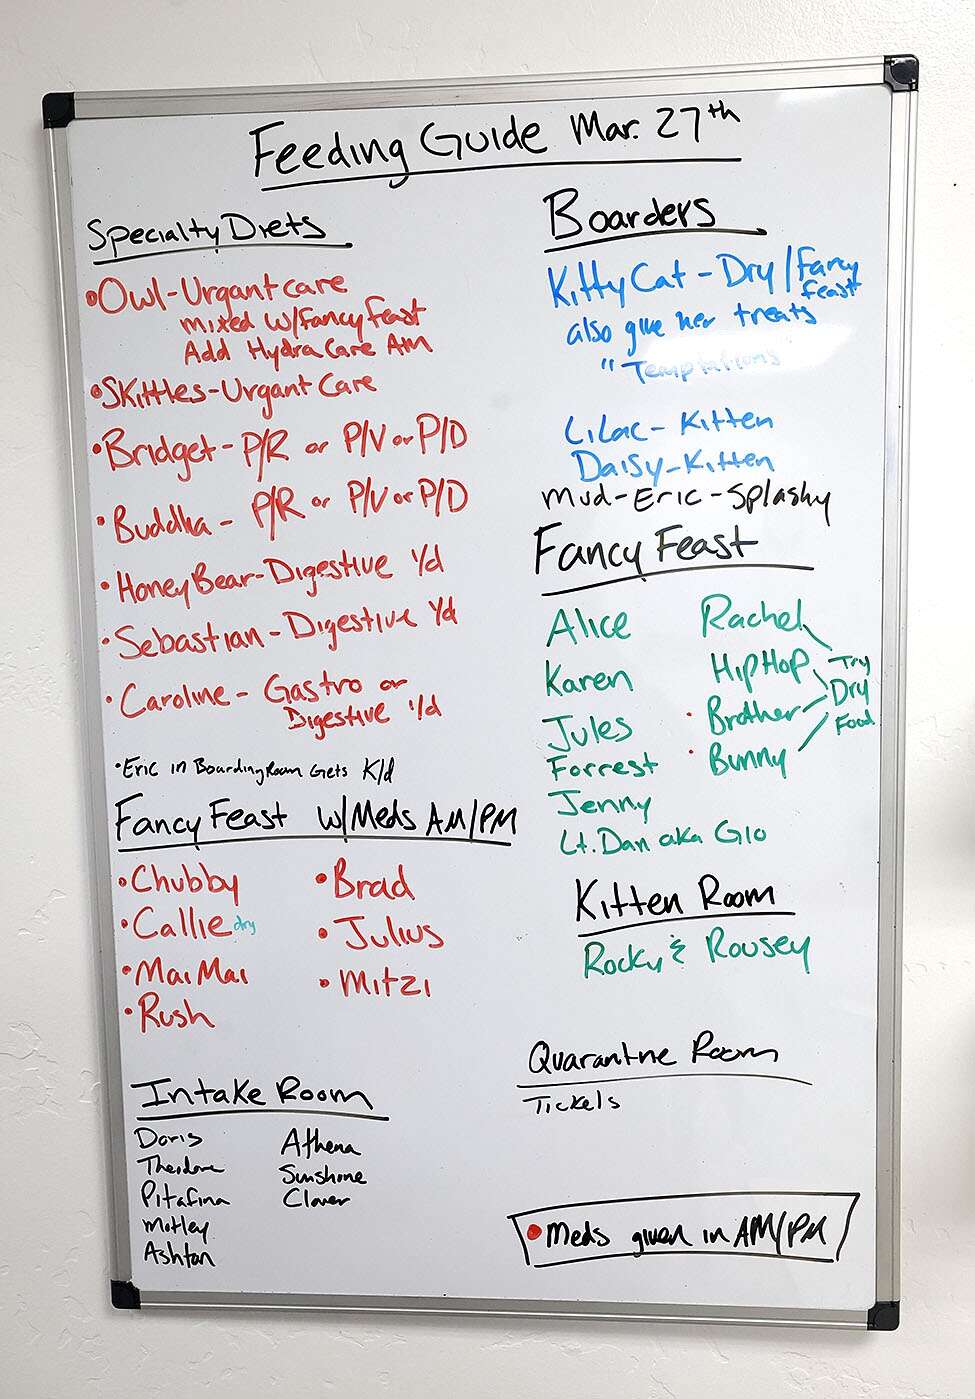 Feeding Guide Mar. 27th
Specialty Diets
•Owl-Urgant care
mixed W/Fancy Feast
Add Hydra Care AM
•Skittles-Urgant Care
•Bridget-P/R or P/V or P/D
•Buddha- P/R or P/V or P/D
•Honey Bear-Digestive i/d
•Sebastian-Digestive i/d
•Caroline- Gastro or
Digestive i/d
•Eric in Boarding Room Gets K/d
Fancy Feast w/Meds AM/PM
•Chubby
•Callie dry
•Mai Mai
•Rush
•Brad
•Julius
•Mitzi
Intake Room
Doris
Theidore
Pitafina
Motley
Ashton
Athena
Sunshine
Clover
Boarders
Kitty Cat-Dry/Fancy
feast
also give her treats
"Temptations
Lilac-Kitten
Daisy-Kitten
Mud-Eric-Splashy
Fancy Feast
Alice
Karen
Jules
Forrest
Jenny
Lt. Dan aka Glo
Rachel
HipHop
•Brother
•Bunny
Try
Dry
Food
Kitten Room
Rocky & Rousey
Quarantine Room
Tickels
•Meds given in AM/PM